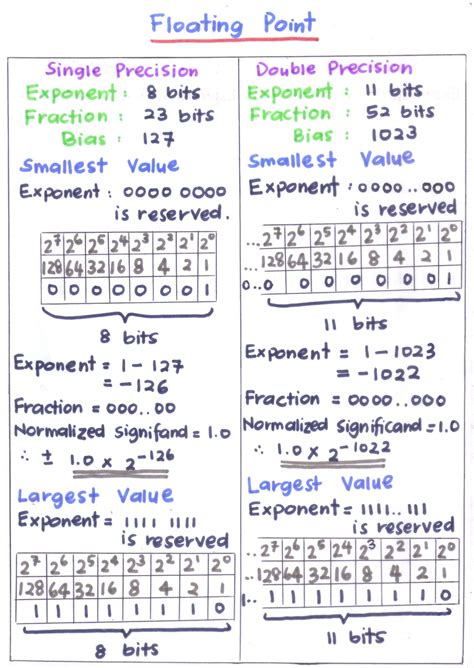 Floating Point
Single Precision
Exponent : 8 bits
Fraction : 23 bits
Bias : 127
Smallest Value
Exponent : 0000 0000
is reserved.
2⁷ 2⁶ 2⁵ 2⁴ 2³ 2² 2¹ 2⁰
128 64 32 16 8 4 2 1
0 0 0 0 0 0 0 1
8 bits
Exponent = 1 - 127
= -126
Fraction = 000..00
Normalized Signifand = 1.0
∴ ± 1.0 x 2⁻¹²⁶
Largest Value
Exponent = 1111 1111
is reserved
2⁷ 2⁶ 2⁵ 2⁴ 2³ 2² 2¹ 2⁰
128 64 32 16 8 4 2 1
1 1 1 1 1 1 1 0
8 bits
Double Precision
Exponent : 11 bits
Fraction : 52 bits
Bias : 1023
Smallest Value
Exponent : 0000..000
is reserved
..2⁷ 2⁶ 2⁵ 2⁴ 2³ 2² 2¹ 2⁰
...128 64 32 16 8 4 2 1
0..0 0 0 0 0 0 0 1
11 bits
Exponent = 1 - 1023
= -1022
Fraction = 0000..000
Normalized Significand = 1.0
∴ 1.0 x 2⁻¹⁰²²
Largest Value
Exponent = 1111.. 111
is reserved
..2⁷ 2⁶ 2⁵ 2⁴ 2³ 2² 2¹ 2⁰
...128 64 32 16 8 4 2 1
1..1 1 1 1 1 1 1 0
11 bits